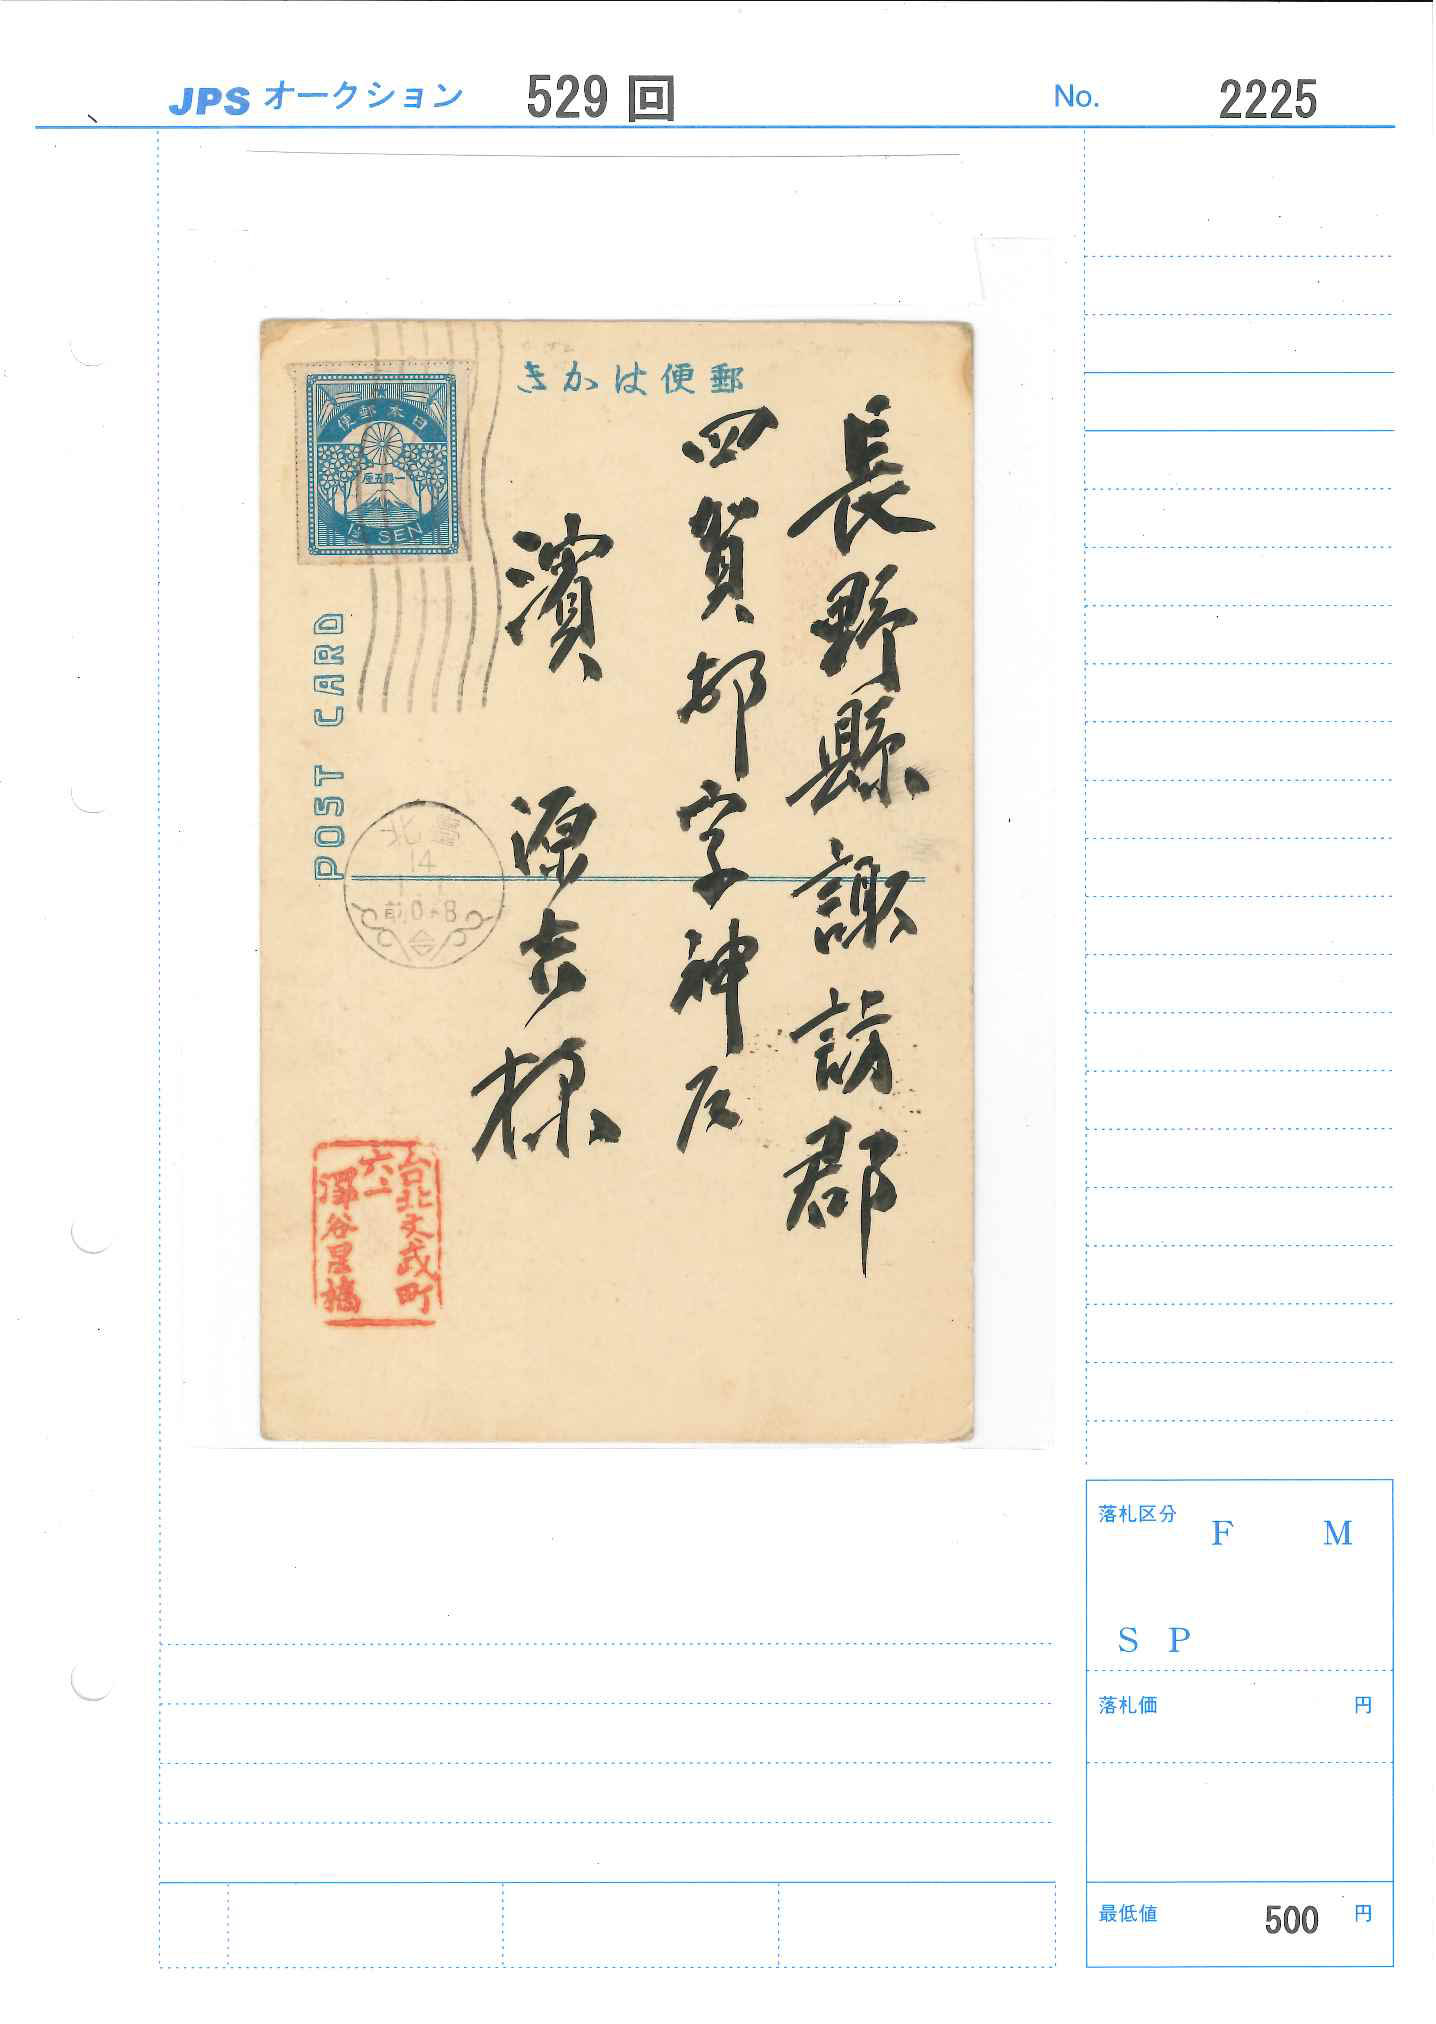 JPS オークション 529 回 No. 2225
きかは便郵
日本郵便
一銭五厘
1½ SEN
POST CARD
長野縣諏訪郡
四賀村字神戸
濱 源吉様
北臺
14
前0-8
台北文武町
六、一
澤谷星橋
落札区分 F M
S P
落札価 円
最低値 500 円